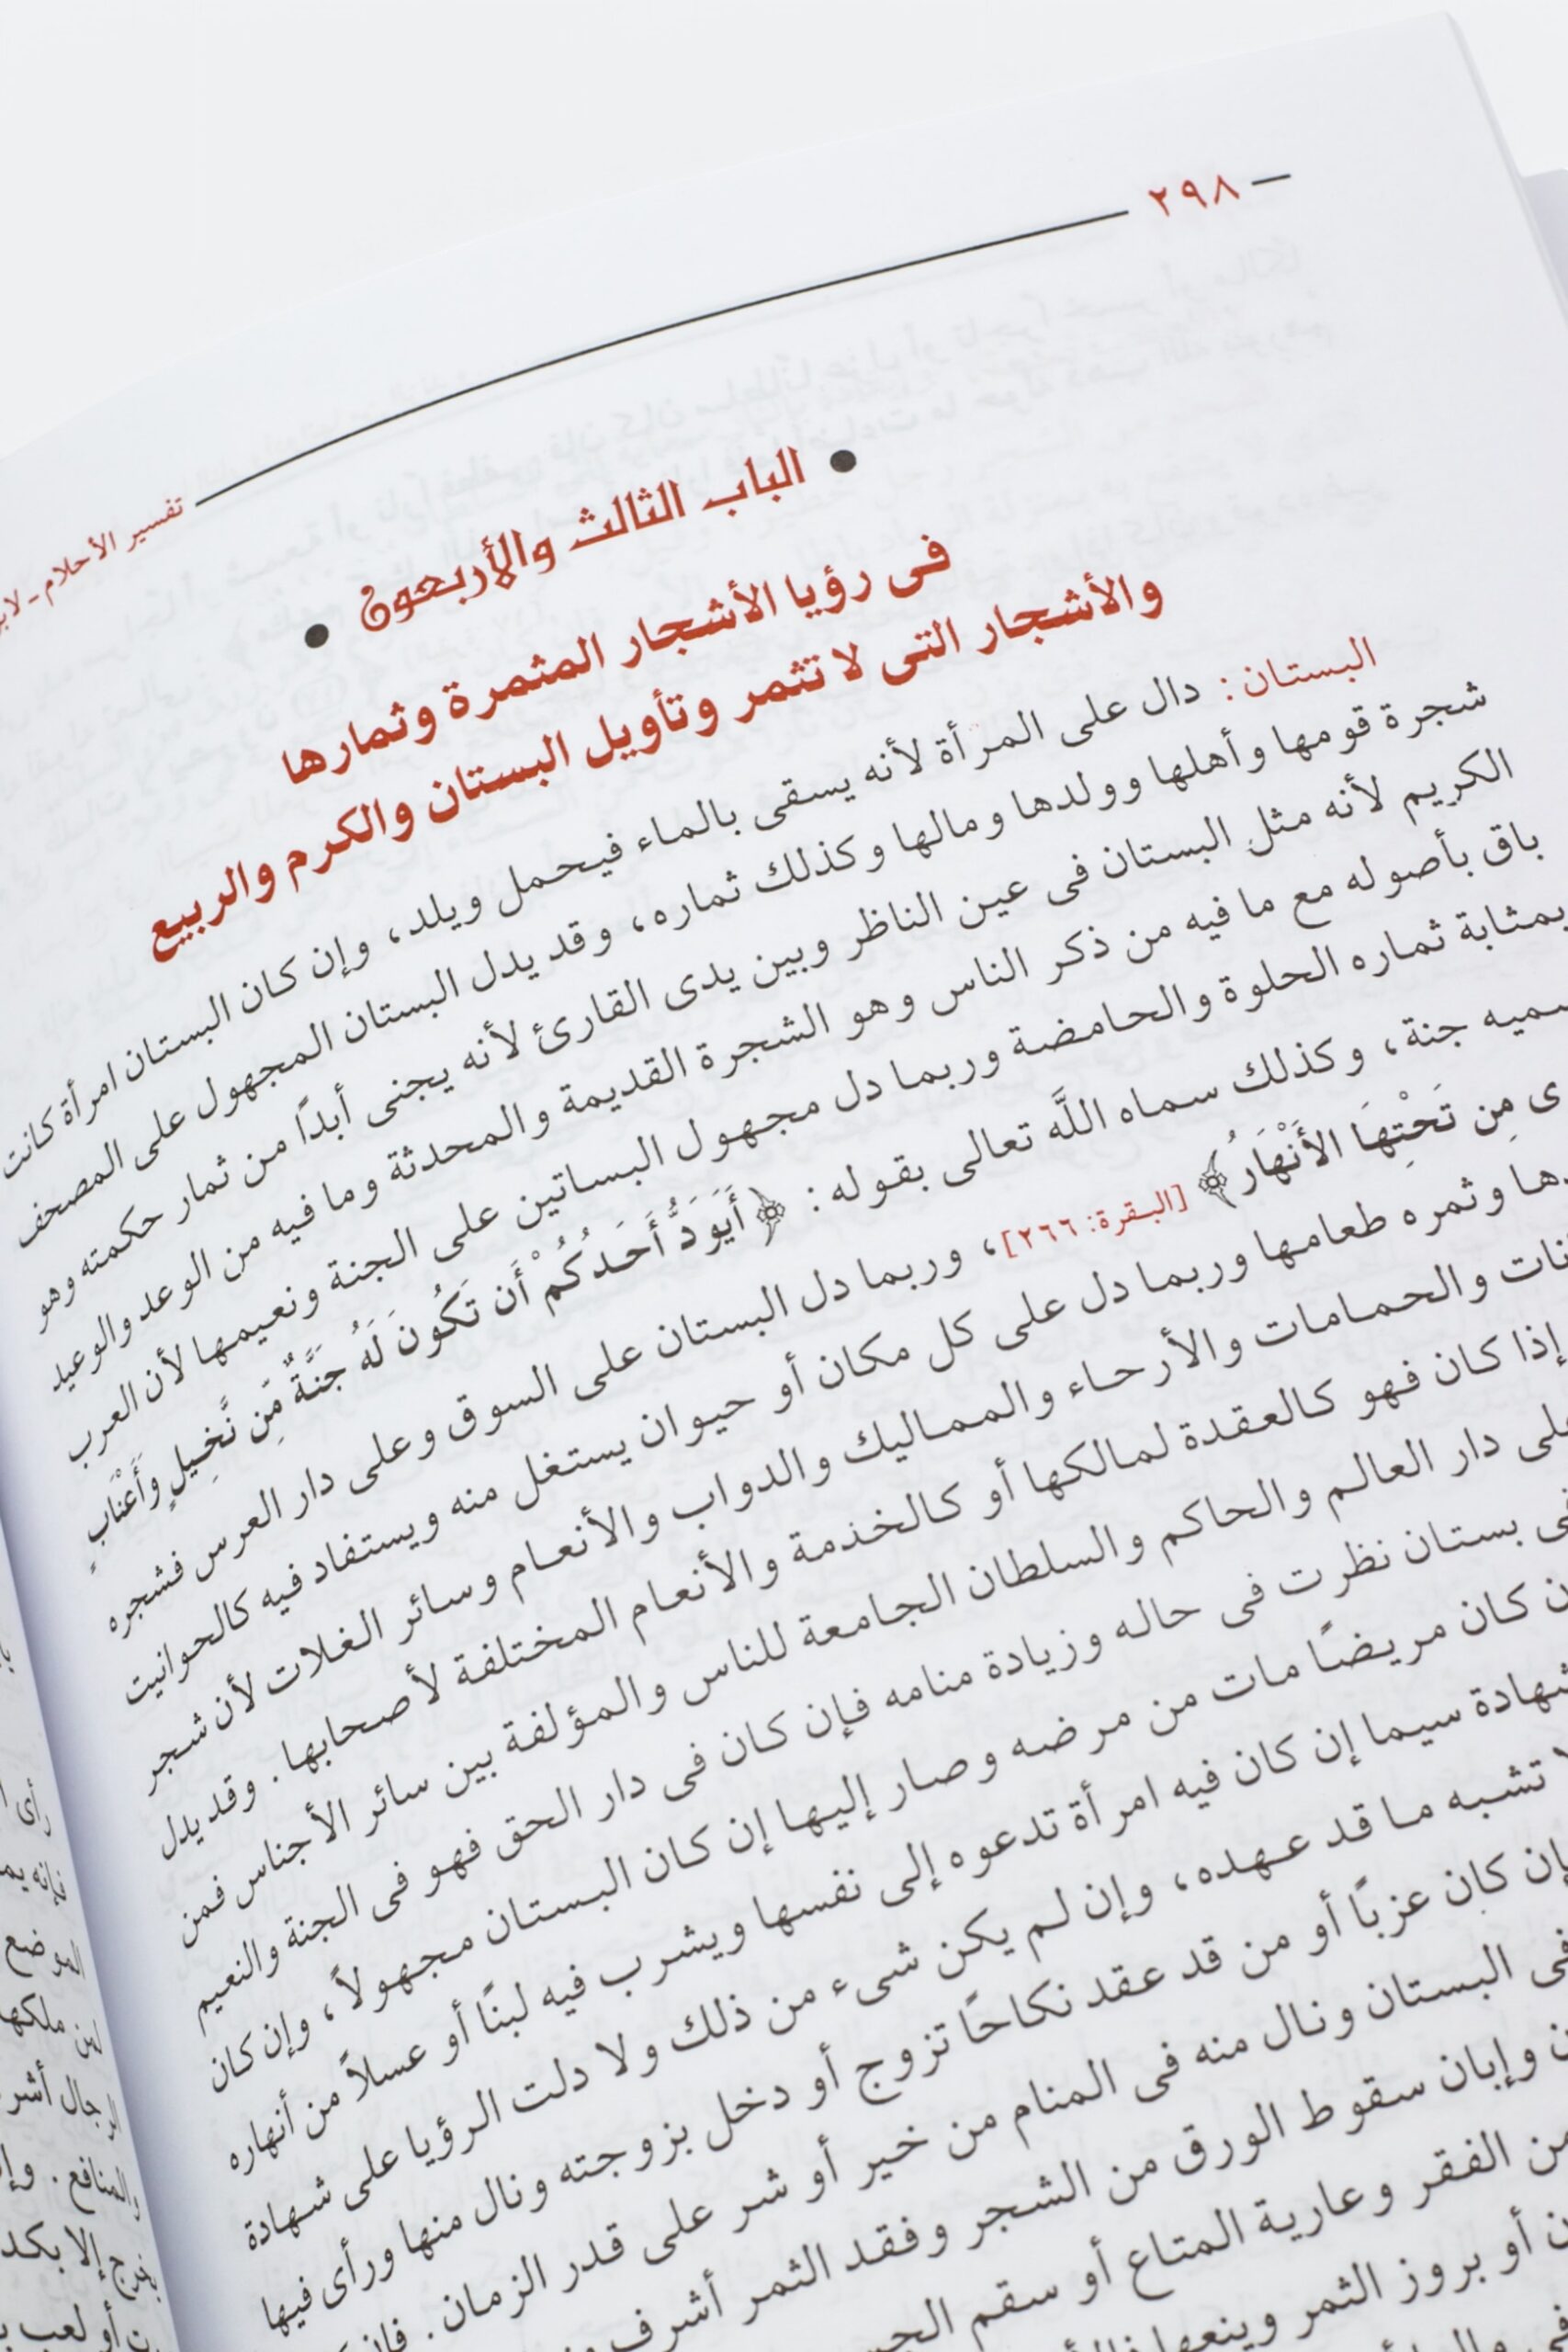 ٢٩٨
تفسير الأحلام -
الباب الثالث والأربعون
فى رؤيا الأشجار المثمرة وثمارها
والأشجار التى لا تثمر وتأويل البستان والكرم والربيع
البستان : دال على المرأة لأنه يسقى بالماء فيحمل ويلد، وإن كان البستان امرأة كانت
شجرة قومها وأهلها وولدها ومالها وكذلك ثماره، وقد يدل البستان المجهول على المصحف
الكريم لأنه مثل البستان فى عين الناظر وبين يدى القارئ لأنه يجنى أبدًا من ثمار حكمته وهو
باق بأصوله مع ما فيه من ذكر الناس وهو الشجرة القديمة والمحدثة وما فيه من الوعد والوعيد
بمثابة ثماره الحلوة والحامضة وربما دل مجهول البساتين على الجنة ونعيمها لأن العرب
جنة، وكذلك سماه اللَّه تعالى بقوله : ﴿أَيَوَدُّ أَحَدُكُمْ أَن تَكُونَ لَهُ جَنَّةٌ مِّن نَّخِيلٍ وَأَعْنَابٍ
مِن تَحْتِهَا الأَنْهَارُ﴾ [البقرة: ٢٦٦]، وربما دل البستان على السوق وعلى دار العرس فشجره
وثمره طعامها وربما دل على كل مكان أو حيوان يستغل منه ويستفاد فيه كالحوانيت
والحمامات والأرحاء والمماليك والدواب والأنعام وسائر الغلات لأن شجر
إذا كان فهو كالعقدة لمالكها أو كالخدمة والأنعام المختلفة لأصحابها. وقد يدل
دار العالم والحاكم والسلطان الجامعة للناس والمؤلفة بين سائر الأجناس فمن
بستان نظرت فى حاله وزيادة منامه فإن كان فى دار الحق فهو فى الجنة والنعيم
كان مريضًا مات من مرضه وصار إليها إن كان البستان مجهولاً، وإن كان
سيما إن كان فيه امرأة تدعوه إلى نفسها ويشرب فيه لبنًا أو عسلاً من أنهاره
تشبه ما قد عهده، وإن لم يكن شىء من ذلك ولا دلت الرؤيا على شهادة
كان عزبًا أو من قد عقد نكاحًا تزوج أو دخل بزوجته ونال منها ورأى فيها
فى البستان ونال منه فى المنام من خير أو شر على قدر الزمان.
وإبان سقوط الورق من الشجر وفقد الثمر أشرف
من الفقر وعارية المتاع أو سقم
أو بروز الثمر وينعها
رأى
فإنه
الموضع
ملكها
الرجال
والمنافع.
إلا بكد
أو لعب